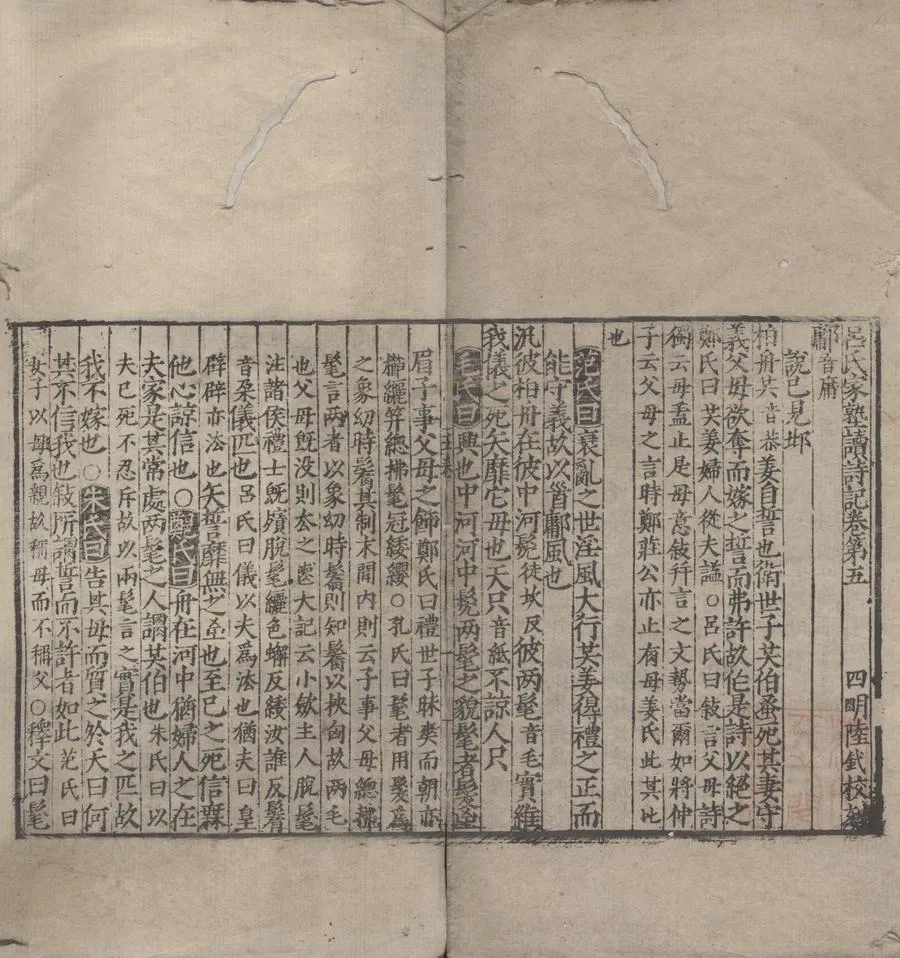 呂氏家塾讀詩記卷第五　四明陸釴校
鄘音庸
說已見邶
柏舟共音恭姜自誓也衛世子共伯蚤死其妻守
義父母欲奪而嫁之誓而弗許故作是詩以絕之
鄭氏曰共姜婦人從夫謚○呂氏曰敍言父母詩
獨云母盖止是母意敍行言之文勢當爾如將仲
子云父母之言時鄭莊公亦止有母姜氏此其比
也
范氏曰衰亂之世淫風大行共姜得禮之正而
能守義故以首鄘風也
汎彼柏舟在彼中河髧徒坎反彼两髦音毛實維
我儀之死矢靡它母也天只音紙不諒人只
毛氏曰興也中河河中髧两髦之貌髦者髮至
眉子事父母之飾鄭氏曰禮世子昧爽而朝亦
櫛纚笄總拂髦冠緌纓○孔氏曰髦者用髮爲
之象幼時鬌其制未聞內則云子事父母總拂
髦言两者以象幼時鬌則知鬌以挾囟故两毛
也父母旣没則去之䘮大記云小斂主人脫髦
注諸侯禮士旣殯脫髦纚色蠏反緌汝誰反鬌
音朶儀匹也呂氏曰儀以夫爲法也猶夫曰皇
辟辟亦法也矢誓靡無之至也至己之死信無
他心諒信也○鄭氏曰舟在河中猶婦人之在
夫家是其常處两髦之人謂共伯也朱氏曰以
夫已死不忍斥故以兩髦言之實是我之匹故
我不嫁也○朱氏曰告其母而質之於天曰何
其不信我也敍所謂誓而不許者如此范氏曰
女子以母爲親故稱母而不稱父○釋文曰髦